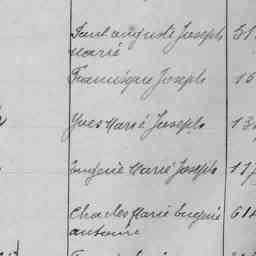 Paul auguste Joseph 31
Marie
Francisque Joseph 16
Yves Marie Joseph 13
Eugène Marie Joseph 117
Charles Marie Eugène 61
antoine